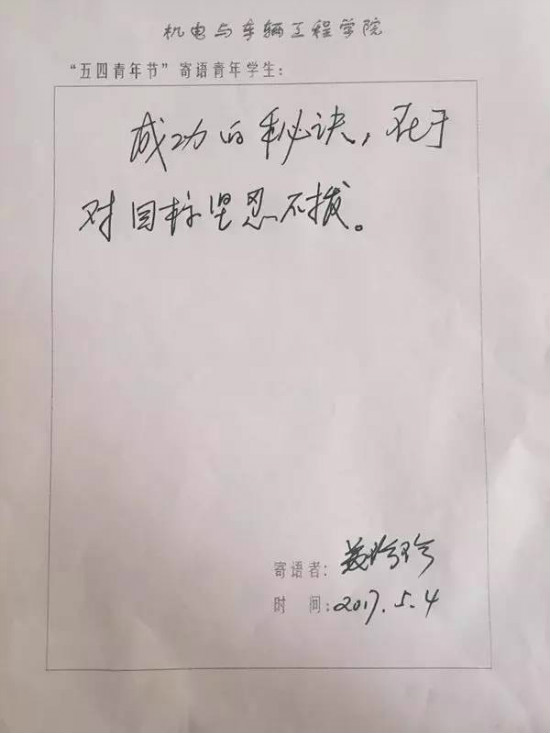 机电与车辆工程学院
“五四青年节”寄语青年学生：
成功的秘诀，在于
对目标坚忍不拔。
寄语者：
时 间：2017.5.4